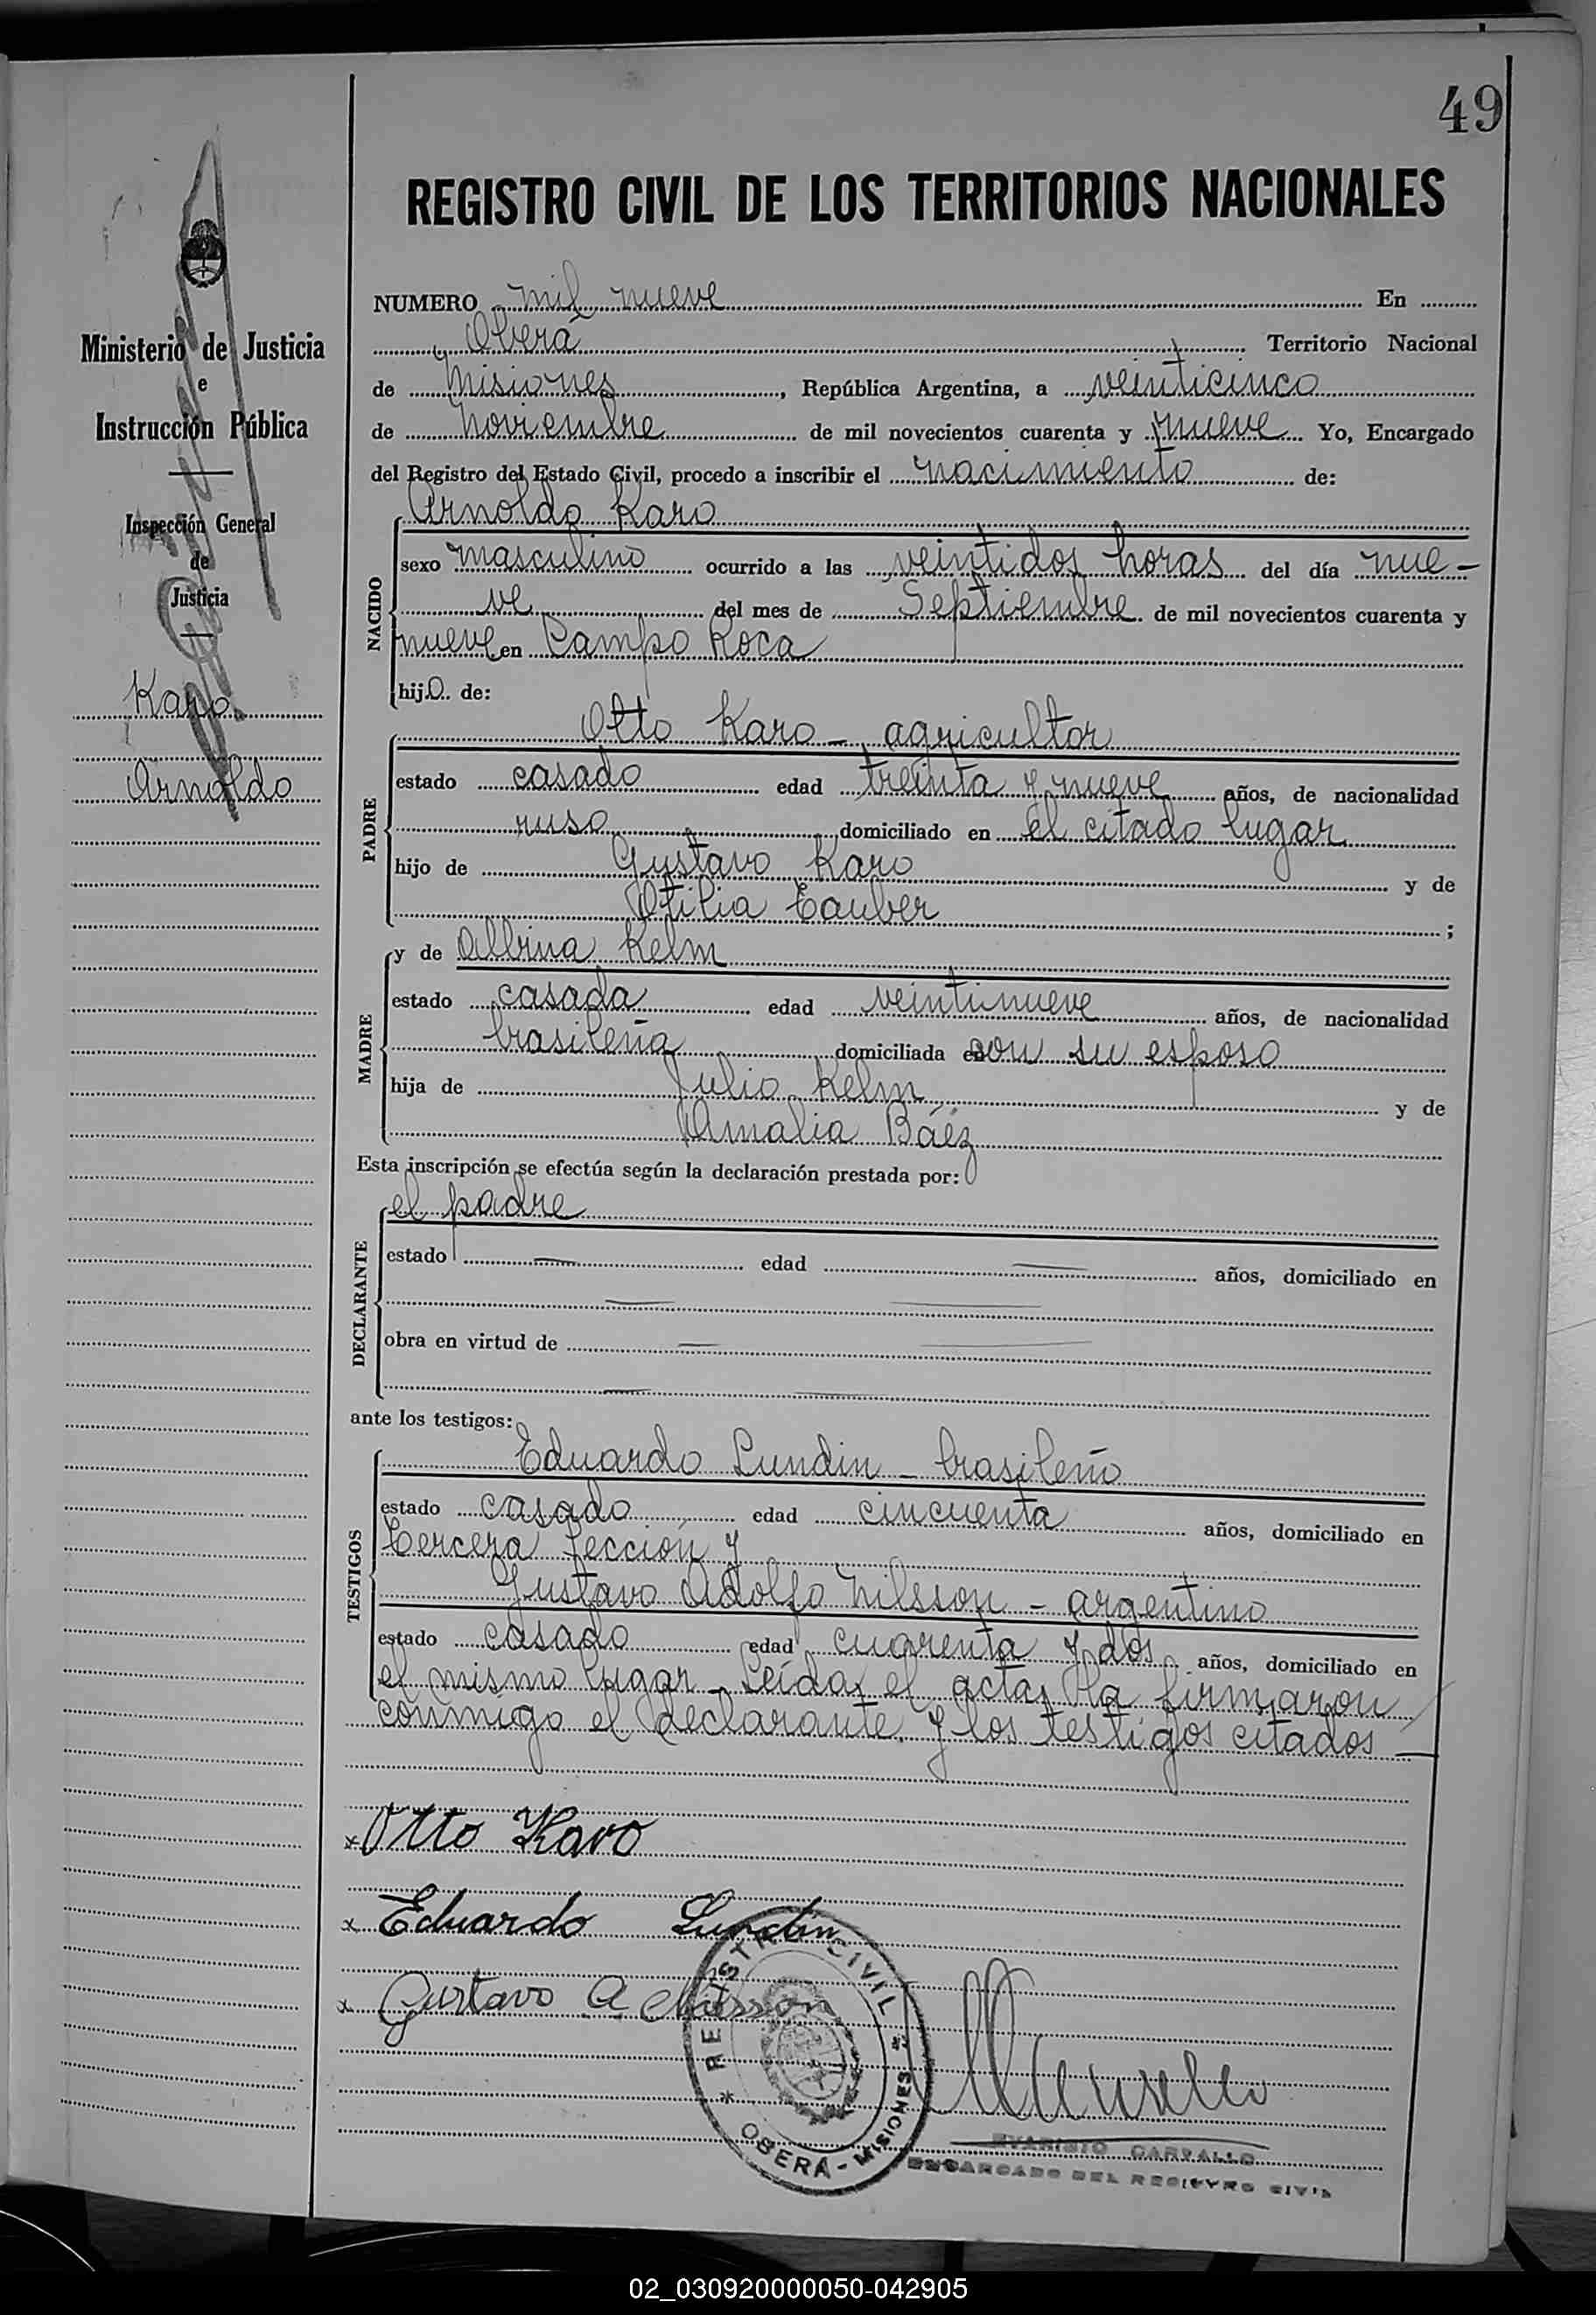 49
REGISTRO CIVIL DE LOS TERRITORIOS NACIONALES
Ministerio de Justicia
e
Instrucción Pública
Inspección General
de
Justicia
Karo
Arnoldo
NUMERO mil nueve En
Oberá Territorio Nacional
de Misiones, República Argentina, a veinticinco
de noviembre de mil novecientos cuarenta y nueve Yo, Encargado
del Registro del Estado Civil, procedo a inscribir el nacimiento de:
Arnoldo Karo
NACIDO
sexo masculino ocurrido a las veintidos horas del día nue-
ve del mes de Septiembre de mil novecientos cuarenta y
nueve en Campo Roca
hijo de:
Otto Karo - agricultor
PADRE
estado casado edad treinta y nueve años, de nacionalidad
ruso domiciliado en el citado lugar
hijo de Gustavo Karo y de
Otilia Tauber ;
y de Albina Kelm
MADRE
estado casada edad veintinueve años, de nacionalidad
brasileña domiciliada en con su esposo
hija de Julio Kelm y de
Amalia Báez
Esta inscripción se efectúa según la declaración prestada por:
el padre
DECLARANTE
estado — edad — años, domiciliado en
obra en virtud de —
ante los testigos:
Eduardo Lundin - brasileño
TESTIGOS
estado casado edad cincuenta años, domiciliado en
tercera sección y
Gustavo Adolfo Nilsson - argentino
estado casado edad cuarenta y dos años, domiciliado en
el mismo lugar - Leída el acta, la firmaron
conmigo el declarante y los testigos citados -
x Otto Karo
x Eduardo Lundin
x Gustavo A Nilsson
* REGISTRO CIVIL *
OBERÁ - MISIONES
EVARISTO CARVALLO
ENCARGADO DEL REGISTRO CIVIL
02_030920000050-042905